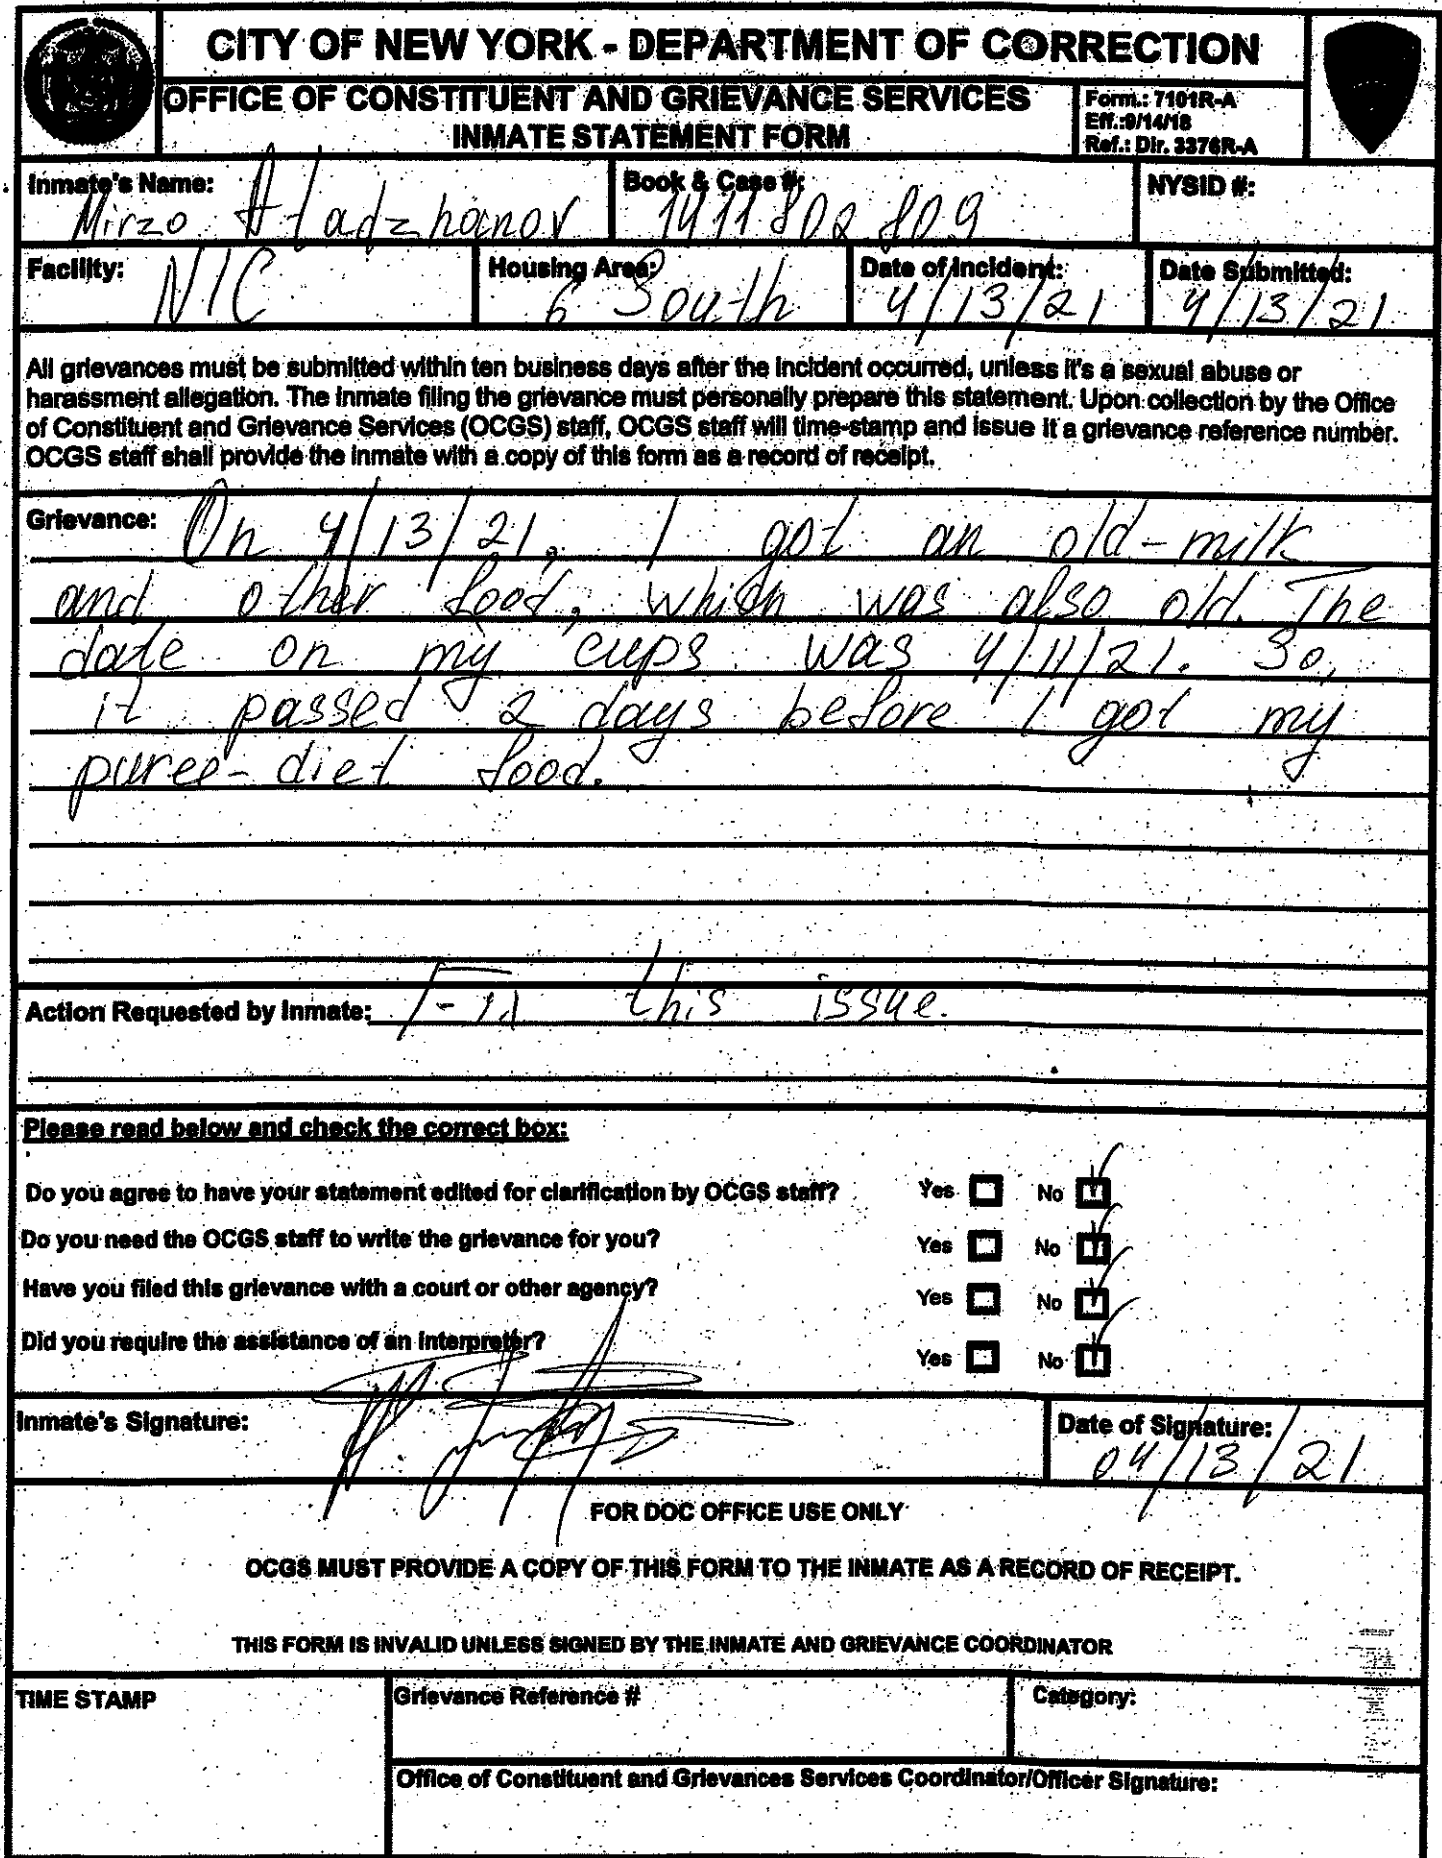 CITY OF NEW YORK - DEPARTMENT OF CORRECTION
OFFICE OF CONSTITUENT AND GRIEVANCE SERVICES
INMATE STATEMENT FORM
Form.: 7101R-A
Eff.:9/14/18
Ref.: Dir. 3376R-A
Inmate's Name: Mirzo Atadzhanov
Book & Case #: 1411802809
NYSID #:
Facility: NIC
Housing Area: 6 South
Date of Incident: 4/13/21
Date Submitted: 4/13/21
All grievances must be submitted within ten business days after the incident occurred, unless it's a sexual abuse or
harassment allegation. The inmate filing the grievance must personally prepare this statement. Upon collection by the Office
of Constituent and Grievance Services (OCGS) staff, OCGS staff will time-stamp and issue it a grievance reference number.
OCGS staff shall provide the inmate with a copy of this form as a record of receipt.
Grievance: On 4/13/21, I got an old-milk
and other food, which was also old. The
date on my cups was 4/11/21. So,
it passed 2 days before I got my
puree-diet food.
Action Requested by Inmate: this issue.
Please read below and check the correct box:
Do you agree to have your statement edited for clarification by OCGS staff? Yes No
Do you need the OCGS staff to write the grievance for you? Yes No
Have you filed this grievance with a court or other agency? Yes No
Did you require the assistance of an interpreter? Yes No
Inmate's Signature:
Date of Signature: 04/13/21
FOR DOC OFFICE USE ONLY
OCGS MUST PROVIDE A COPY OF THIS FORM TO THE INMATE AS A RECORD OF RECEIPT.
THIS FORM IS INVALID UNLESS SIGNED BY THE INMATE AND GRIEVANCE COORDINATOR
TIME STAMP
Grievance Reference #
Category:
Office of Constituent and Grievances Services Coordinator/Officer Signature: